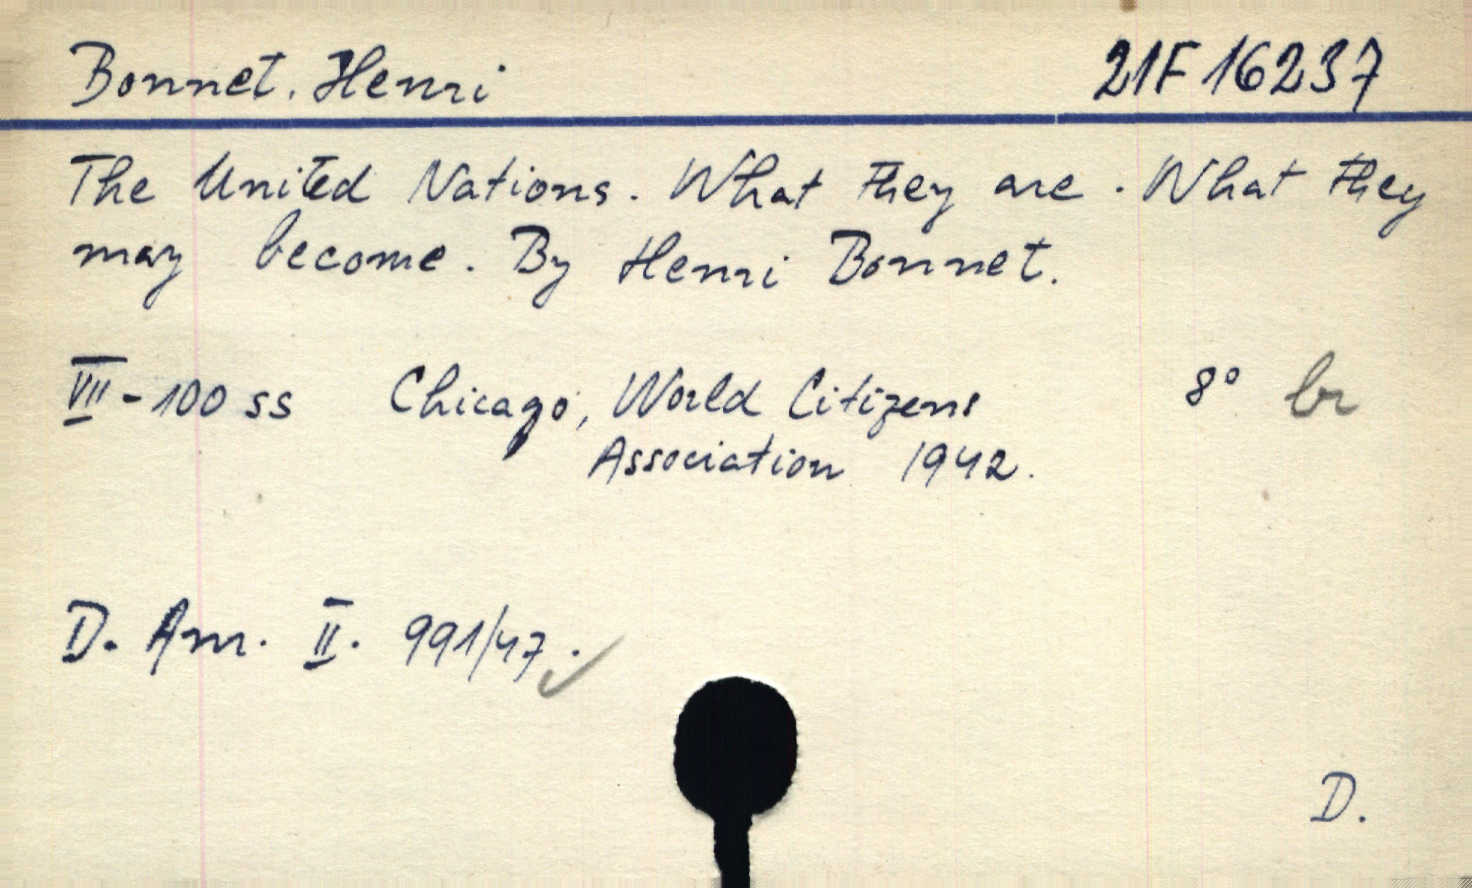 Bonnet. Henri 21F 16237
The United Nations. What they are. What they
may become. By Henri Bonnet.
VII - 100 ss Chicago, World Citizens 8° br
Association 1942.
D. Am. II. 991/47.
D.